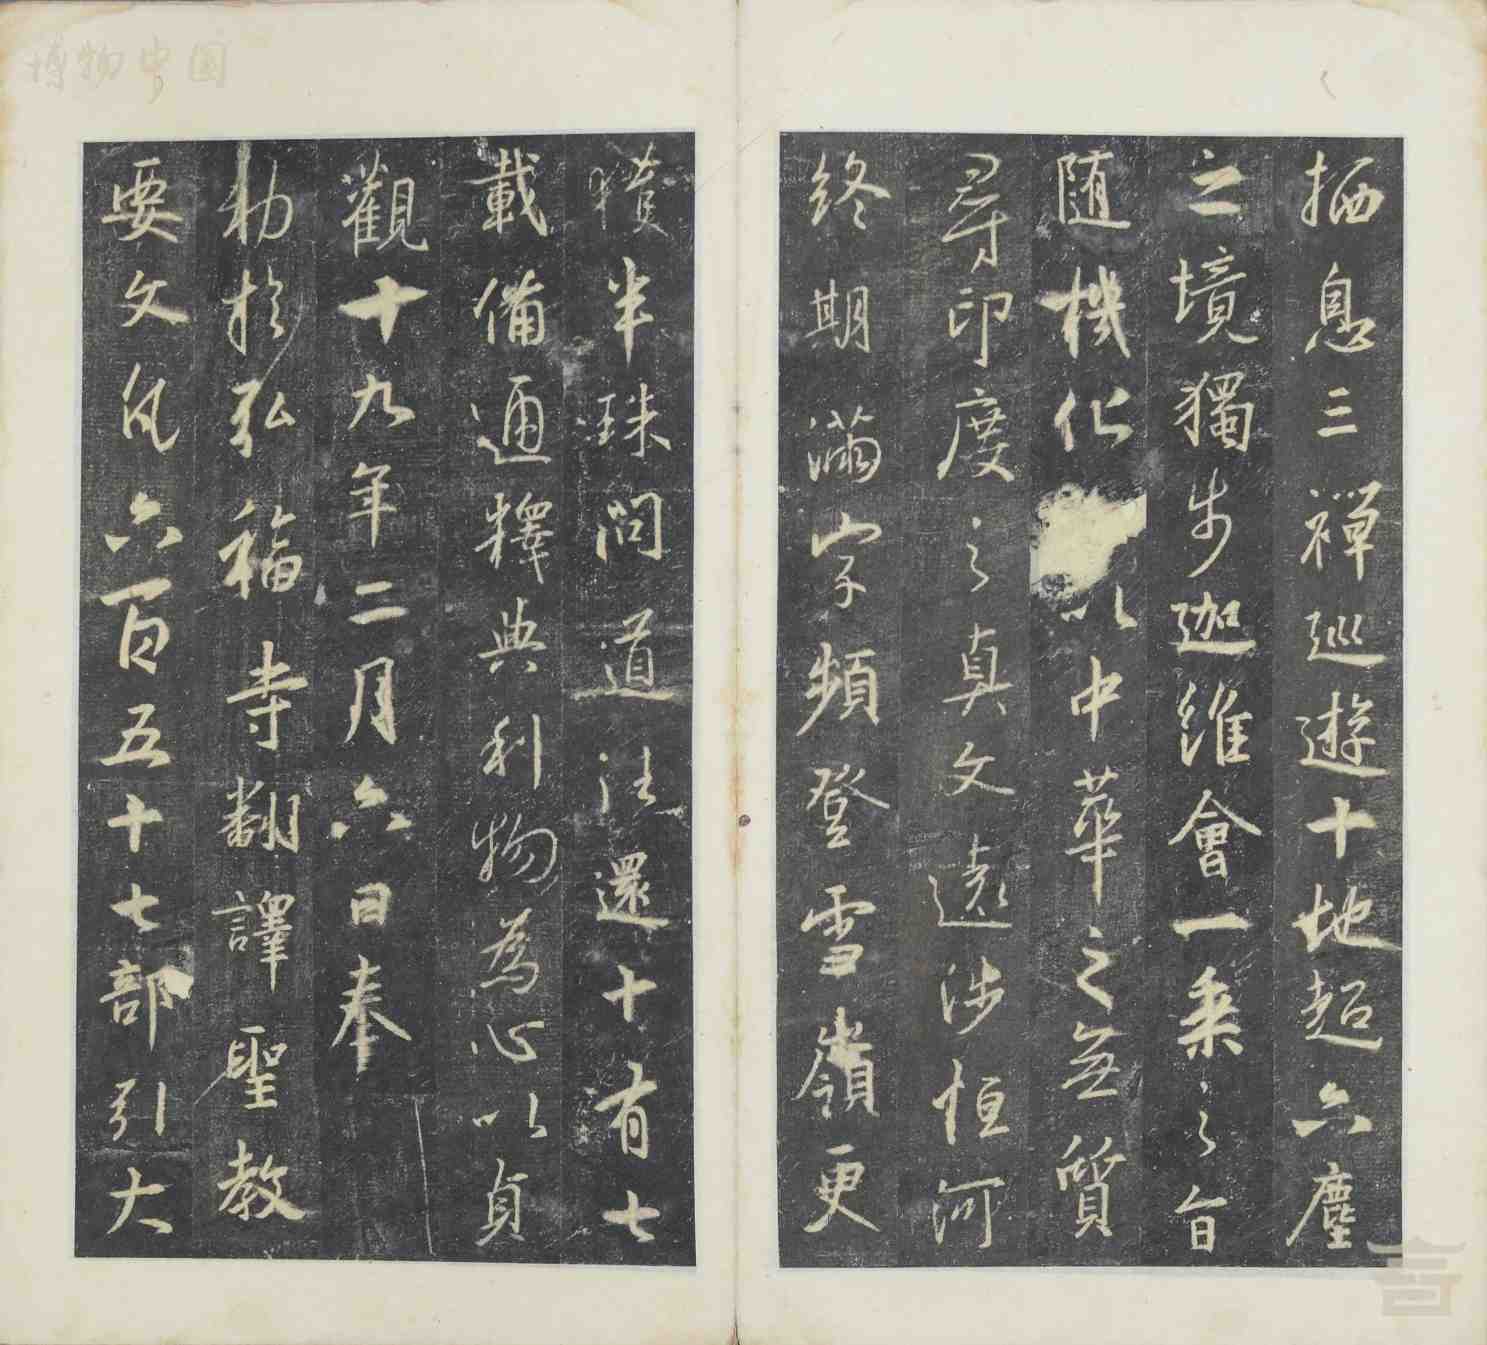 栖息三禪巡遊十地超六塵
之境獨步迦維會一乘之旨
随機化以中華之無質
尋印度之真文遠涉恒河
終期滿字頻登雪嶺更
獲半珠問道法還十有七
載備通釋典利物為心以貞
觀十九年二月六日奉
勑於弘福寺翻譯聖教
要文凡六百五十七部引大
博物中国